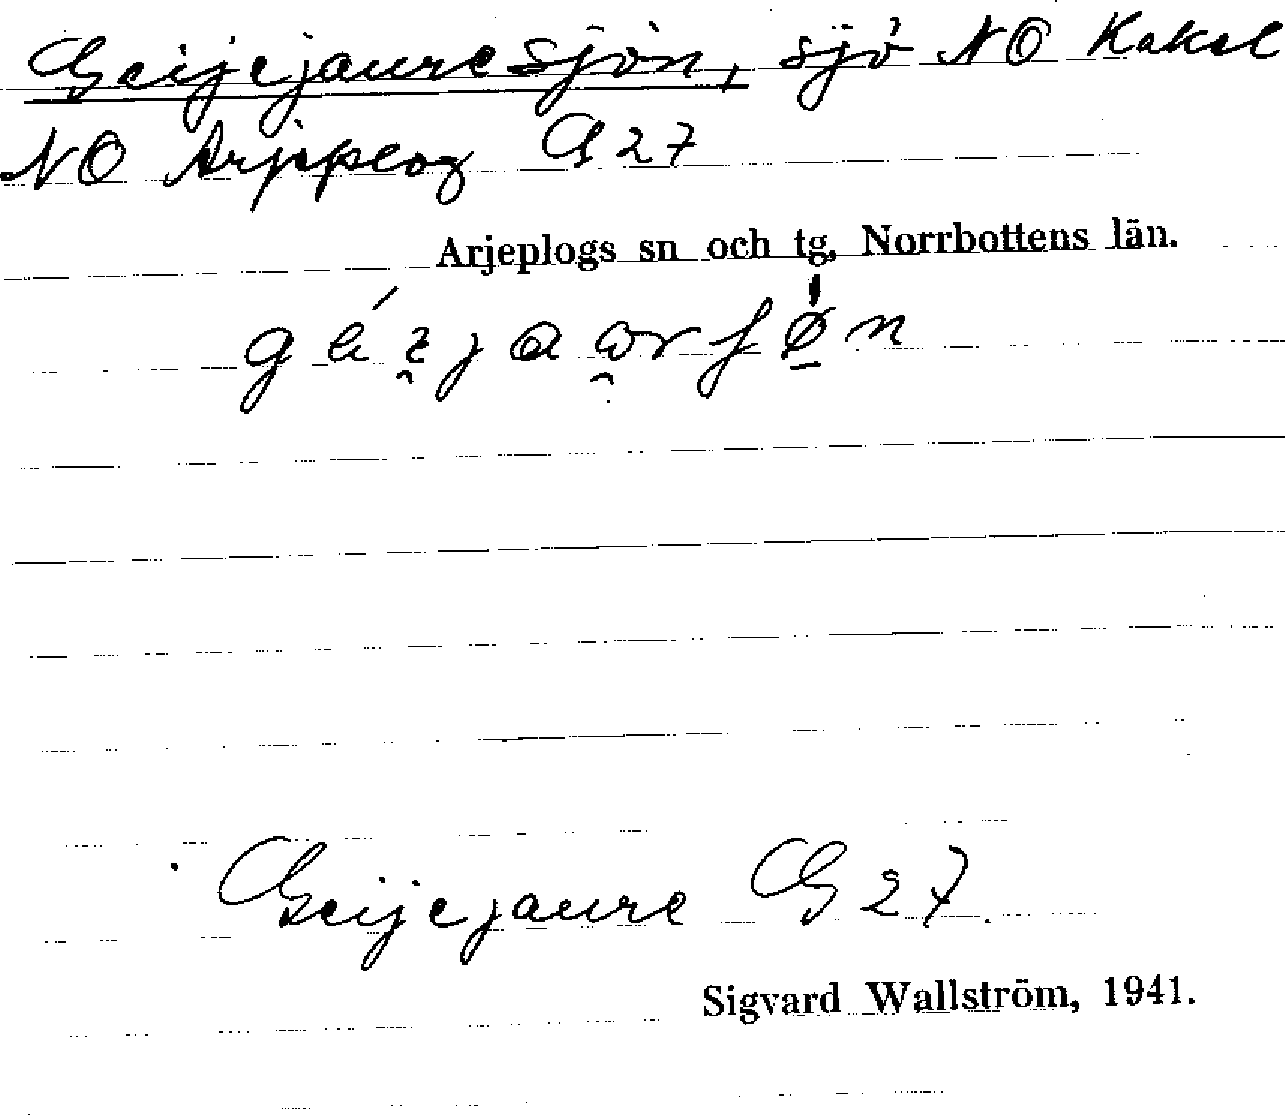 Geijejauresjön, sjö NO Kakel
NO Arjeplog G 27
Arjeplogs sn och tg, Norrbottens län.
Geijejaure G 27.
Sigvard Wallström, 1941.